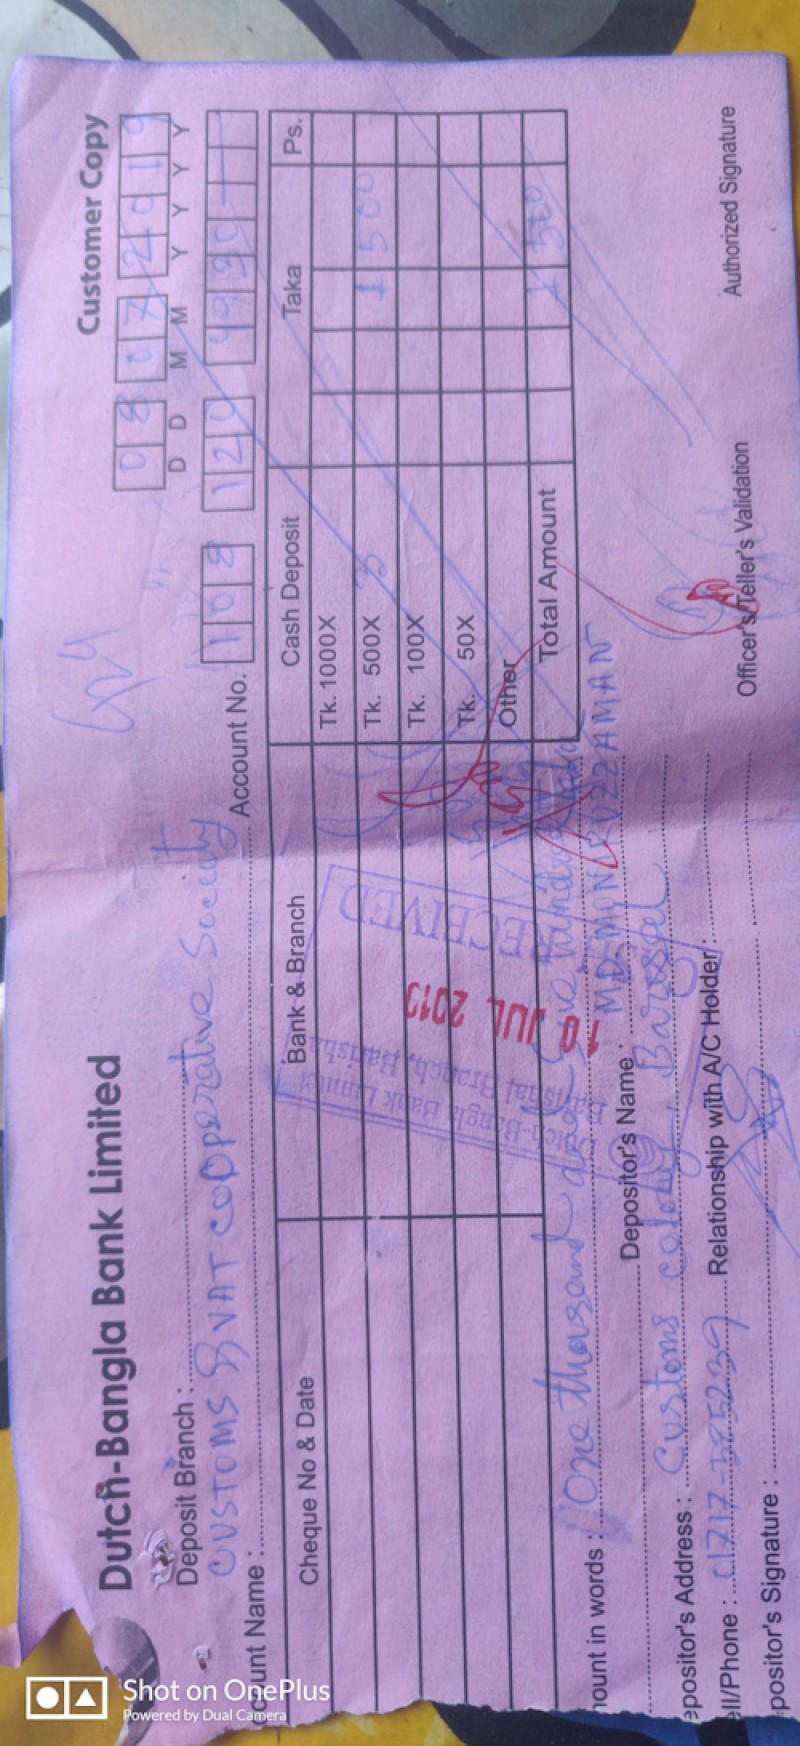 Dutch-Bangla Bank Limited
Customer Copy
08 07 2019
D D M M Y Y Y Y
Deposit Branch :
CUSTOMS & VAT COOPERATIVE Society
ount Name :
Account No.
108 120
Cheque No & Date
Bank & Branch
Cash Deposit
Taka
Ps.
Tk. 1000X
Tk. 500X 3
1 500
Tk. 100X
Tk. 50X
Other
Total Amount
1 500
Dutch-Bangla Bank Limited
Barisal Branch, Barisha
JUL 2019
RECEIVED
nount in words : One thousand and five hundred
Depositor's Name : MD. MONIRUZZAMAN
epositor's Address : Customs colony, Barisal
ell/Phone : 01717-385239
Relationship with A/C Holder :
positor's Signature :
Officer's/Teller's Validation
Authorized Signature
Shot on OnePlus
Powered by Dual Camera